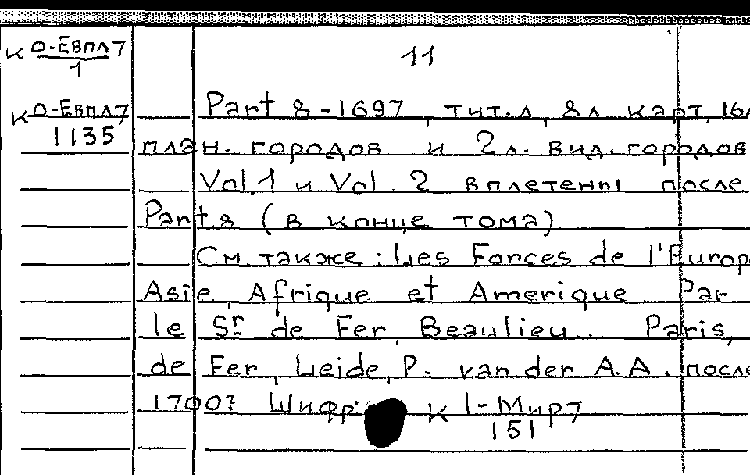 К О-Евпл7
1
11
К О-Евпл7
1135
Part 8 - 1697, тит.л, 8л карт, 16л
план. городов и 2л. вид. городов
Vol.1 и Vol. 2 вплетены после
Part 8 (в конце тома)
См. также: Les Forces de l'Europ
Asie, Afrique et Amerique Par
le Sr de Fer, Beaulieu. Paris,
de Fer, Leide, P. van der A.A. после
1700? Шифр К 1-Мир7
151